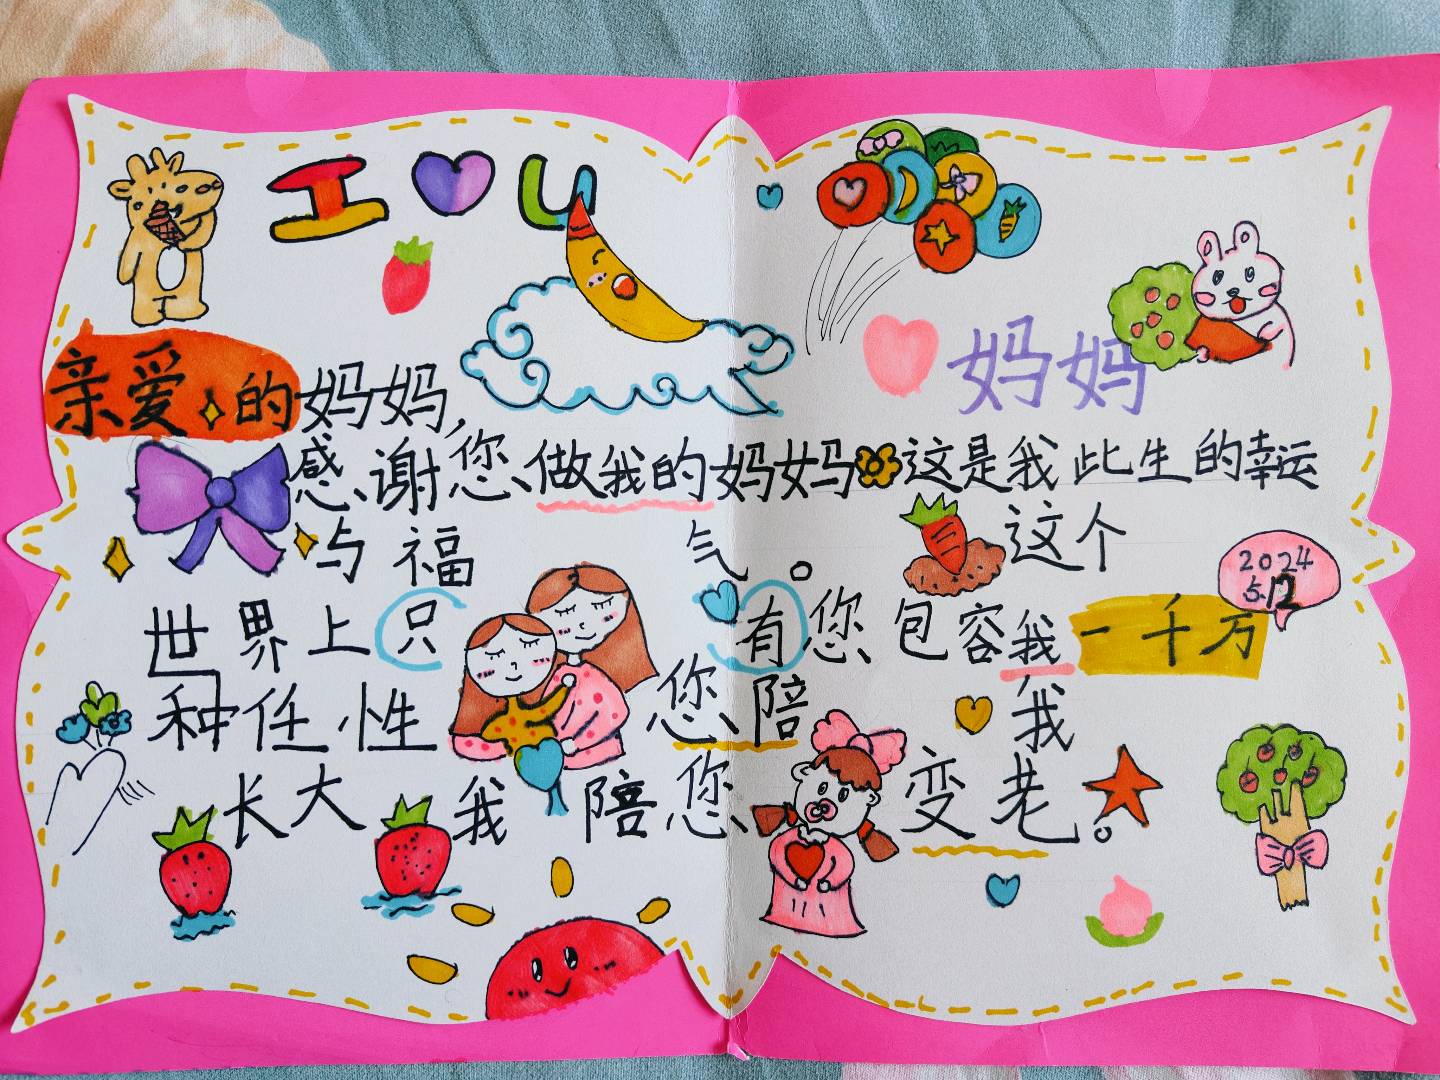 I U
妈妈
亲爱的妈妈,
感谢您做我的妈妈这是我此生的幸运
与福气。这个
2024
5.12
世界上只有您包容我一千万
种任性您陪我
长大我陪您变老。